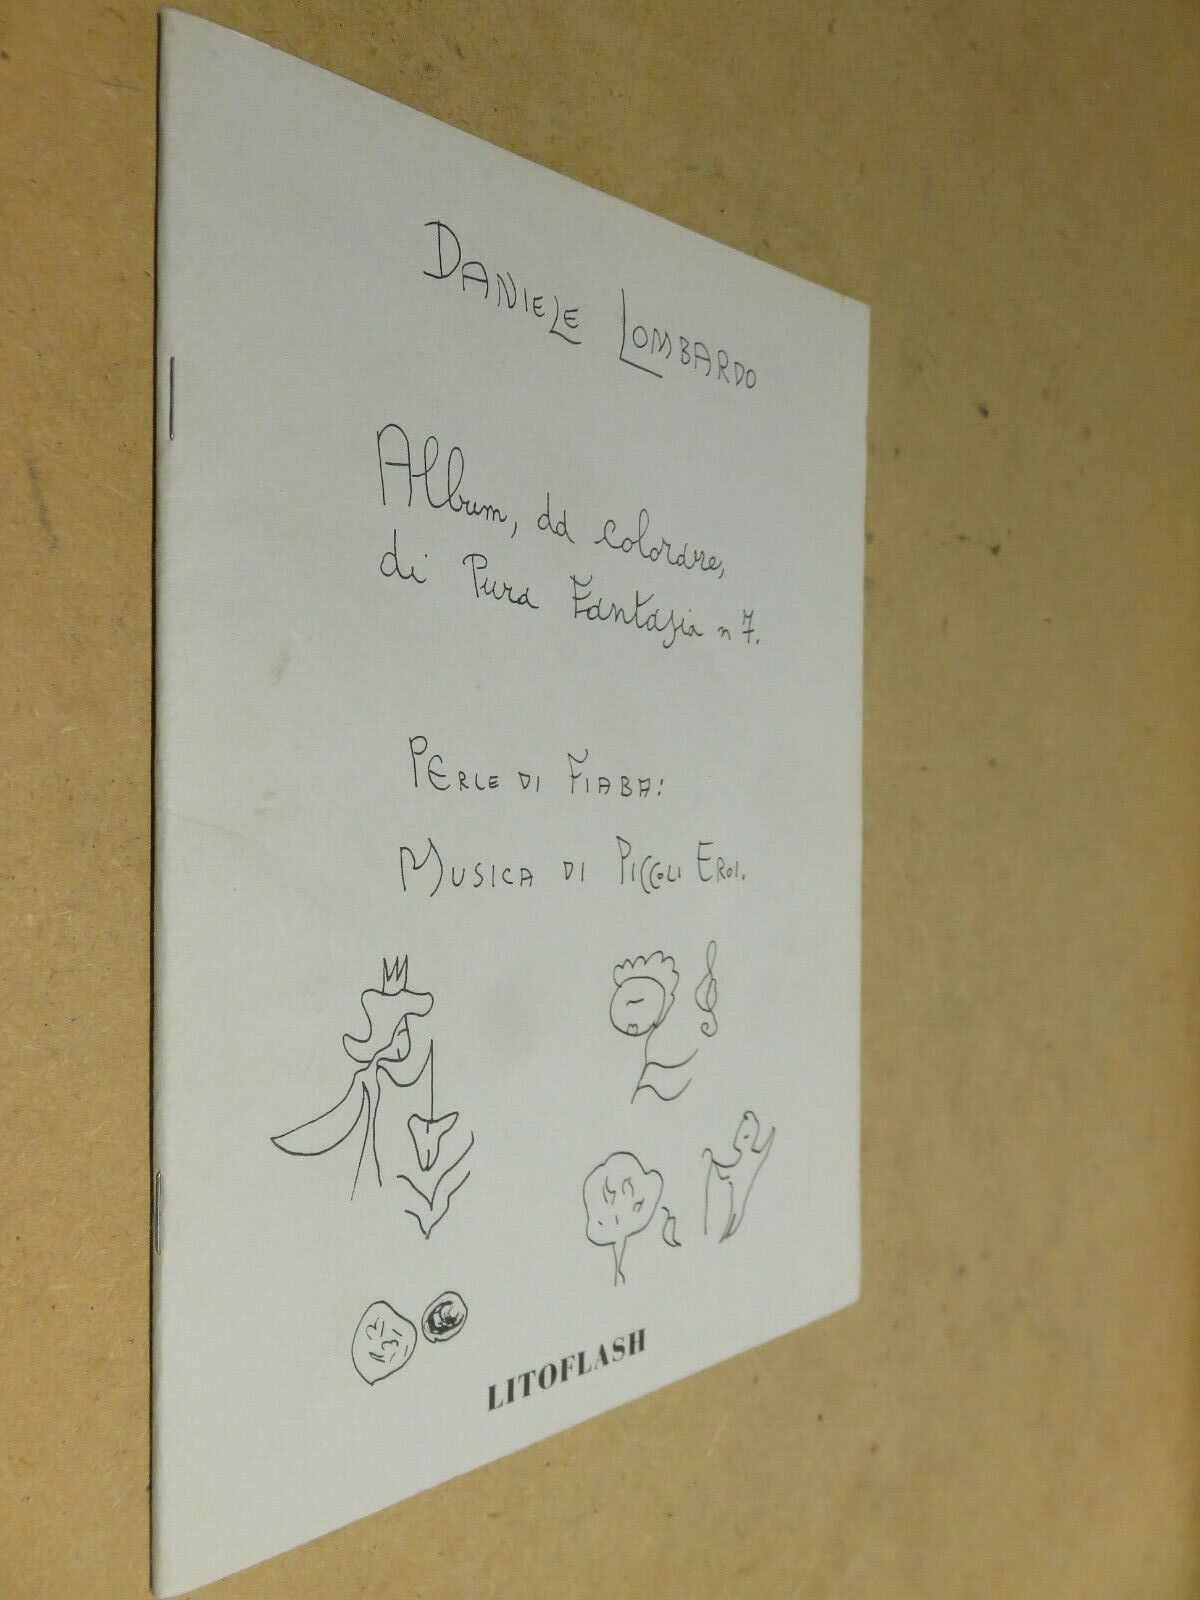 DANIELE LOMBARDO
Album, da colorare,
di Pura Fantasia n 7.
PERLE DI FIABA:
MUSICA DI PICCOLI EROI.
LITOFLASH